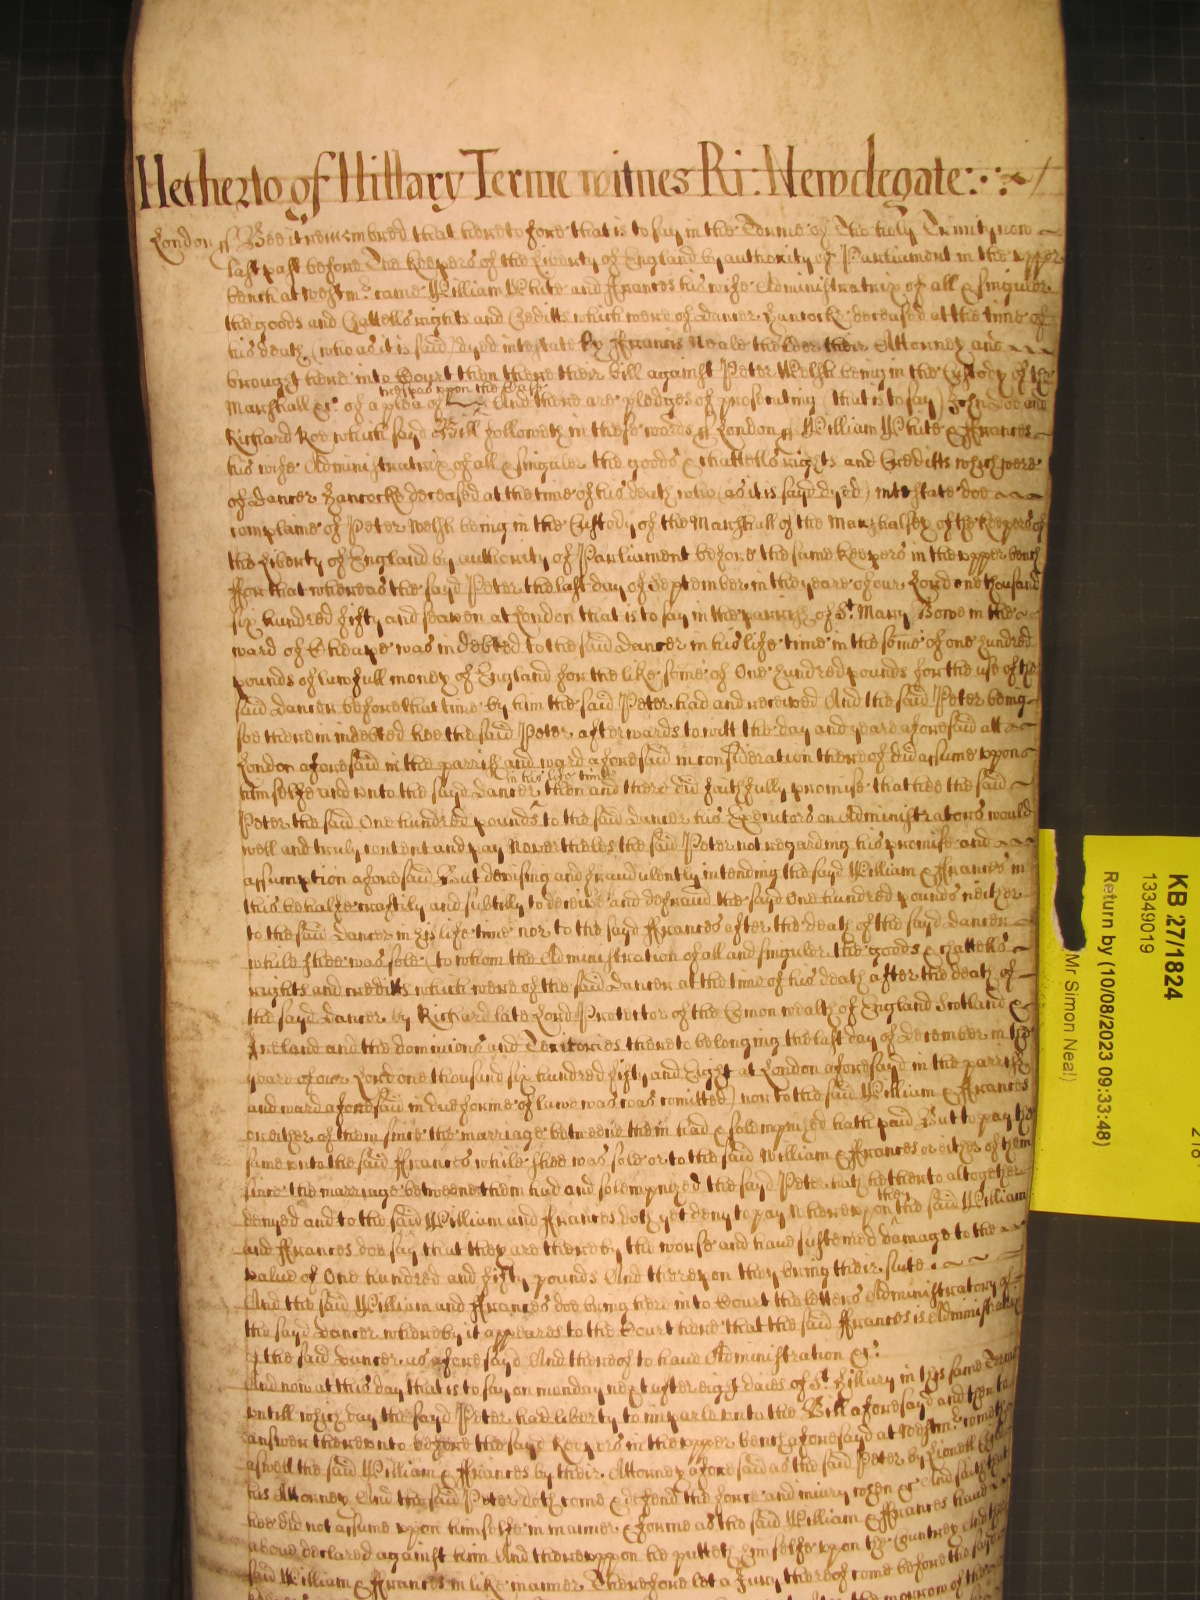 Hetherto of Hillary Terme witnes Ri: Newdegate:
London ss Bee it remembred that heretofore that is to say in the Terme of The holy Trinity now
last past before The keepers of the Liberty of England by authority of Parliament in the upper
bench at Westmr. came William White and Frances his wife Administratrix of all & singuler
the goods and Chattells rights and Creditts which were of Dancer Hancocke deceased at the time of
his death (who as it is said) dyed intestate by Francis Neale the elder their Attorney and
brought here into Court then there their bill against Peter Welsh being in the Custody of the
trespas uppon the Case
Marshall &c. of a plea of And there are pledges of prosecuting (that is to say) John Doe and
Richard Roe which sayd Bill followeth in these words ss London ss William White & Frances
his wife Administratrix of all & singuler the goods & chattells rights and Creditts which were
of Dancer Hancocke deceased at the time of his death who (as it is sayd dyed) intestate doe
complaine of Peter Welsh being in the Custody of the Marshall of the Marshalsey of the keepers of
the Liberty of England by authority of Parliament before the same keepers in the upper bench
For that whereas the sayd Peter the last day of September in the yeare of our Lord one thousand
six hundred fifty and seaven at London that is to say in the parrish of St. Mary Bowe in the
ward of Cheape was indebted to the said Dancer in his life time in the some of one hundred
pounds of lawfull money of England for the like some of One hundred pounds for the use of the
said Dancer before that time by him the said Peter had and received And the said Peter being
soe therein indebted hee the said Peter afterwards to witt the day and yeare aforesaid att
London aforesaid in the parrish and ward aforesaid in consideration thereof did assume uppon
in his life time
himselfe and unto the sayd Dancer then and there did faithfully promise that hee the said
Peter the said One hundred pounds to the said Dancer his Executors or Administrators would
well and truly content and pay Neverthelesse the said Peter not regarding his promise and
assumption aforesaid But devising and fraudulently intending the sayd William & Frances in
this behalfe craftily and subtilly to deceive and defraud the sayd One hundred pounds neither
to the said Dancer in his life time nor to the sayd Frances after the death of the sayd Dancer
while shee was sole (to whom the Administration of all and singuler the goods & chattells
rights and creditts which were of the said Dancer at the time of his death after the death of
the sayd Dancer by Richard late Lord Protector of the Comon wealth of England Scotland &
Ireland and the dominions and Territories thereto belonging the last day of December in the
yeare of our Lord one thousand six hundred fifty and Eight at London aforesayd in the parrish
and ward aforesaid in due forme of lawe was was comitted) nor to the said William & Frances
or either of them since the marriage betweene them had & solempnized hath paid But to pay the
same unto the said Frances while shee was sole or to the said William & Frances or either of them
since the marriage betweene them had and solempnized the sayd Peter hath hetherto altogether
denyed and to the said William and Frances doth yet deny to pay Whereuppon the said William
and Frances doe say that they are thereby the worse and have susteined damage to the
value of One hundred and fifty pounds And thereupon they bring their suite
And the said William and Frances doe bring here into Court the letters Administratory of
the sayd Dancer whereby it appeares to the Court here that the said Frances is Administratrix
of the said Dancer as aforesayd And thereof to have Administration &c.
And now at this day that is to say on monday next after eight daies of St. Hillary in this same Terme
untill which day the sayd Peter had liberty to imparle unto the Bill aforesayd and then to
answer thereunto before the sayd keepers in the upper bench aforesayd at Westmr. cometh
aswell the said William & Frances by their Attorney aforesaid as the said Peter by Lionell
his Attorney And the said Peter doth come & defend the force and iniury when &c And saith that
hee did not assume uppon himselfe in manner & forme as the said William & Frances have
above declared against him And thereuppon he putteth himselfe uppon the Countrey And the
said William & Frances in like manner Therefore let a Jury thereof come before the sayd
KB 27/1824
13349019
Return by (10/08/2023 09:33:48)
Mr Simon Neal)